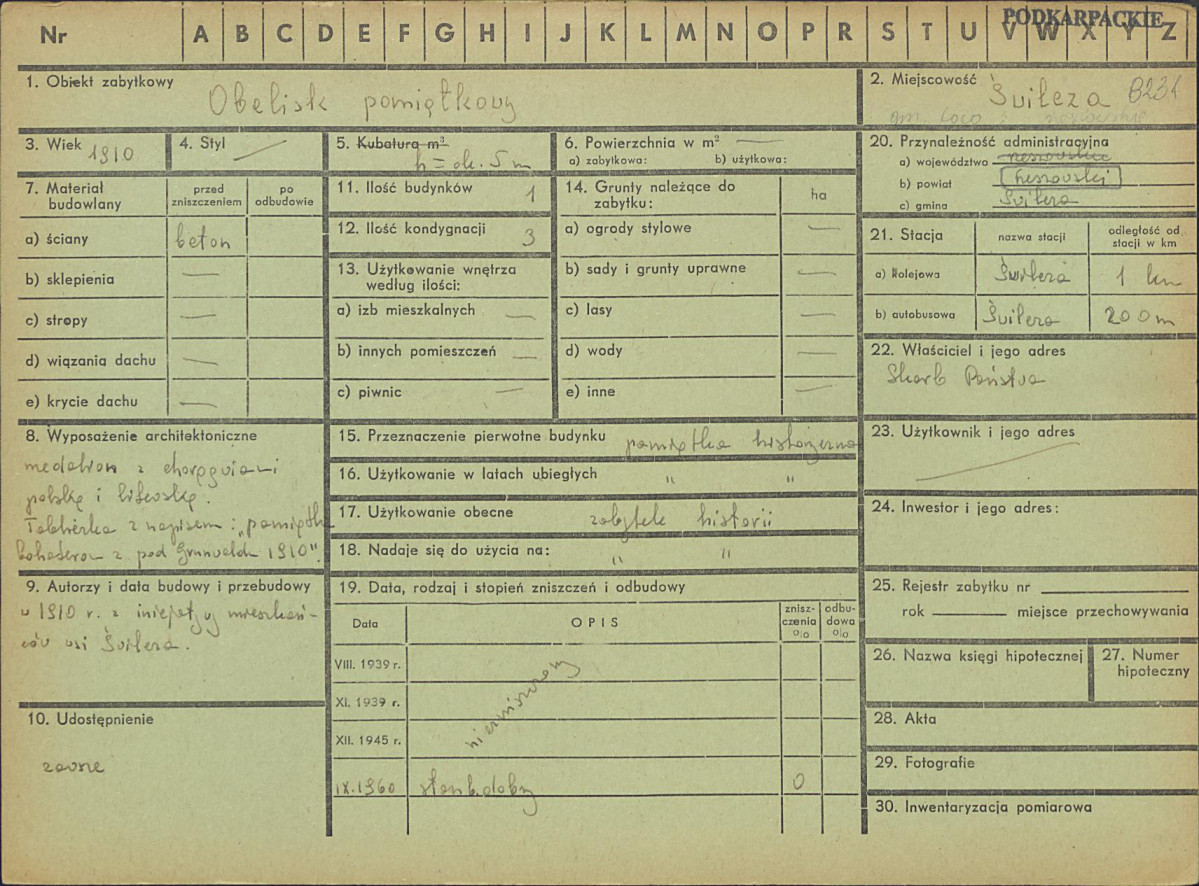 PODKARPACKIE
Nr A B C D E F G H I J K L M N O P R S T U V W X Y Z
1. Obiekt zabytkowy
Obelisk pamiątkowy
2. Miejscowość
Świlcza
3. Wiek 1910
4. Styl —
5. Kubatura m³
h = ok. 5 m
6. Powierzchnia w m² —
a) zabytkowa: b) użytkowa:
7. Materiał budowlany
przed zniszczeniem
po odbudowie
a) ściany beton
b) sklepienia —
c) stropy —
d) wiązania dachu —
e) krycie dachu —
8. Wyposażenie architektoniczne
medalion z chorągwiami
polską i litewską.
Tabliczka z napisem: „pamiątka
bohaterom z pod Grunwaldu 1910".
9. Autorzy i data budowy i przebudowy
w 1910 r. z inicjatywy mieszkań-
ców wsi Świlcza.
10. Udostępnienie
zawsze
11. Ilość budynków 1
12. Ilość kondygnacji 3
13. Użytkowanie wnętrza
według ilości:
a) izb mieszkalnych —
b) innych pomieszczeń —
c) piwnic —
14. Grunty należące do
zabytku: ha
a) ogrody stylowe —
b) sady i grunty uprawne —
c) lasy —
d) wody —
e) inne —
15. Przeznaczenie pierwotne budynku pamiątka historyczna
16. Użytkowanie w latach ubiegłych " "
17. Użytkowanie obecne zabytek historii
18. Nadaje się do użycia na: " "
19. Data, rodzaj i stopień zniszczeń i odbudowy
Data OPIS
znisz-
czenia
%
odbu-
dowa
%
VIII. 1939 r.
XI. 1939 r.
XII. 1945 r.
niezniszczony
IX.1960 stan b.dobry 0
20. Przynależność administracyjna
a) województwo rzeszowskie
b) powiat rzeszowski
c) gmina Świlcza
21. Stacja
nazwa stacji
odległość od
stacji w km
a) kolejowa Świlcza 1 km
b) autobusowa Świlcza 200 m
22. Właściciel i jego adres
Skarb Państwa
23. Użytkownik i jego adres
24. Inwestor i jego adres:
25. Rejestr zabytku nr
rok miejsce przechowywania
26. Nazwa księgi hipotecznej
27. Numer
hipoteczny
28. Akta
29. Fotografie
30. Inwentaryzacja pomiarowa